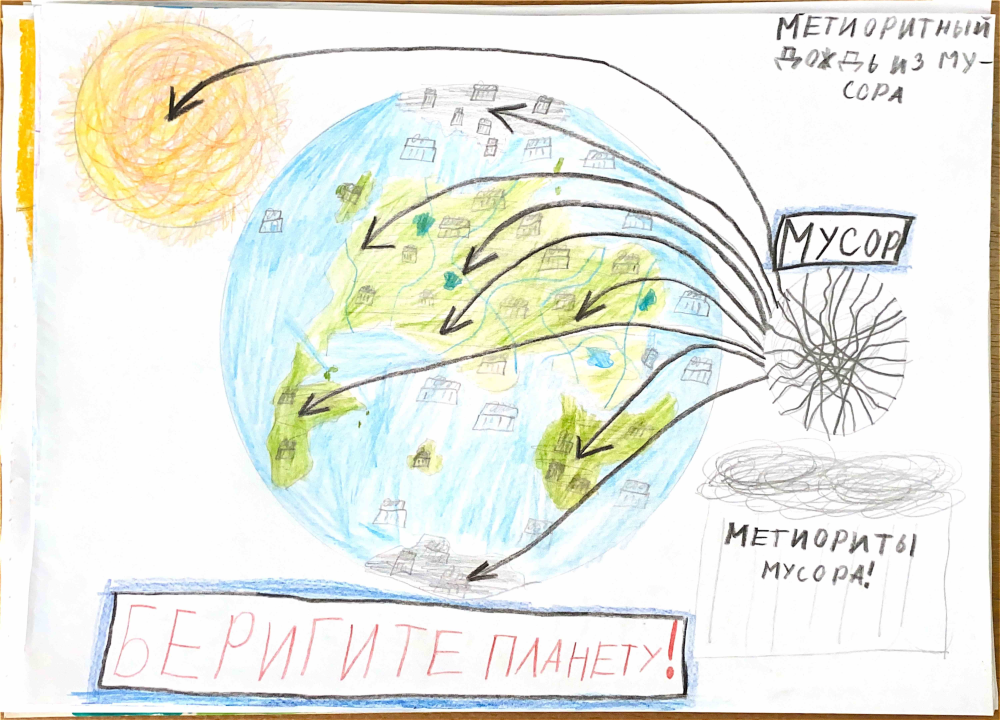 МЕТИОРИТНЫЙ
ДОЖДЬ ИЗ МУ-
СОРА
МУСОР
МЕТИОРИТЫ
МУСОРА!
БЕРИГИТЕ ПЛАНЕТУ!